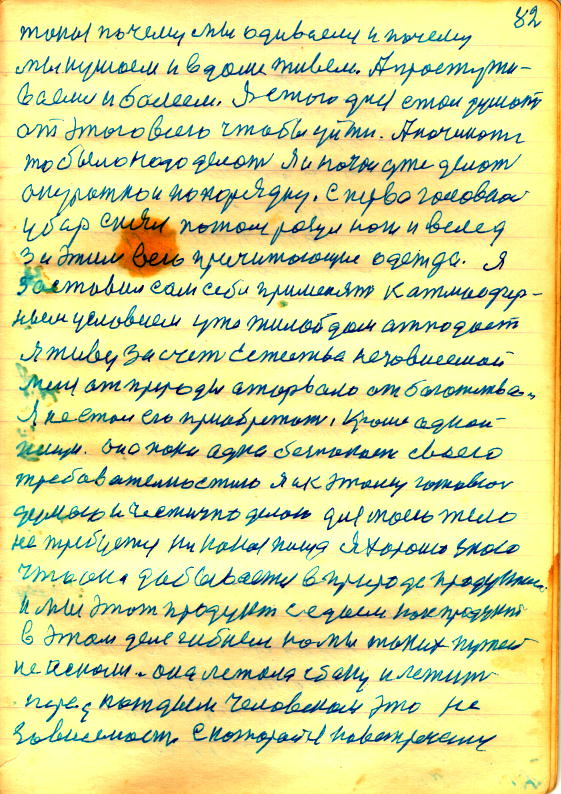 82
такой почему мы одиваем и почему
мы кушаем и в доме живем. А простужи-
ваем и болеем. Я с того дня стал думать
от этого всего чтобы уйти. А починать
то было надо делать я и начал уже делать
опуратно и по порядку. С перва головной
убор снял потом розул ноги и вслед
за этим весь причитающие одежда. Я
заставил сам себя применят к атмосфер-
ным условием уже жилой дом отподает
Я живу за счет Естества независемой
меня от природы оторвало от богатства.
Я не стал его приобретать, Кроме одной
пищи. она пока одна безпокоит своего
требовательностию я и к этому готовлю
думаю и честично делаю для тела
не требует ни какой пищи Я хорошо знаю
что она добывается в природе продуктом
и мы этот продукт седаем как продукт
в этом деле гибнем но мы таких путей
не искали. она летала сбоку и летит
перед каждым человеком это не
зависемость с которой я повстречился